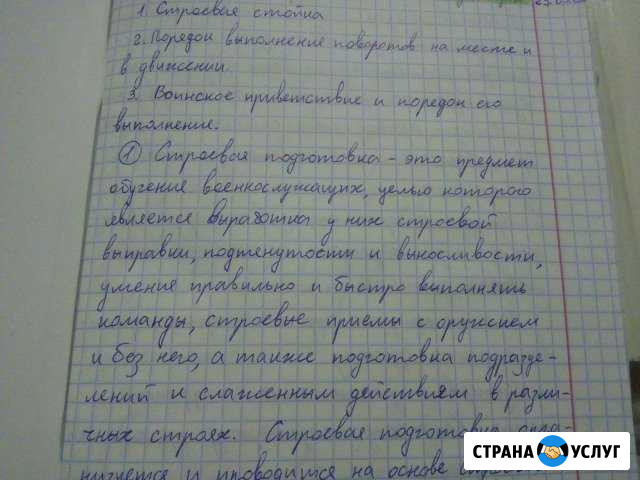 1. Строевая стойка
2. Порядок выполнение поворотов на месте и
в движении.
3. Воинское приветствие и порядок его
выполнение.
1 Строевая подготовка - это предмет
обучение военнослужащих, целью которого
является выработка у них строевой
выправки, подтянутости и выносливости,
умение правильно и быстро выполнять
команды, строевые приемы с оружием
и без него, а также подготовка подразде-
лений к слаженным действиям в разли-
чных строях. Строевая подготовка орга-
низуется и проводится на основе
СТРАНА УСЛУГ